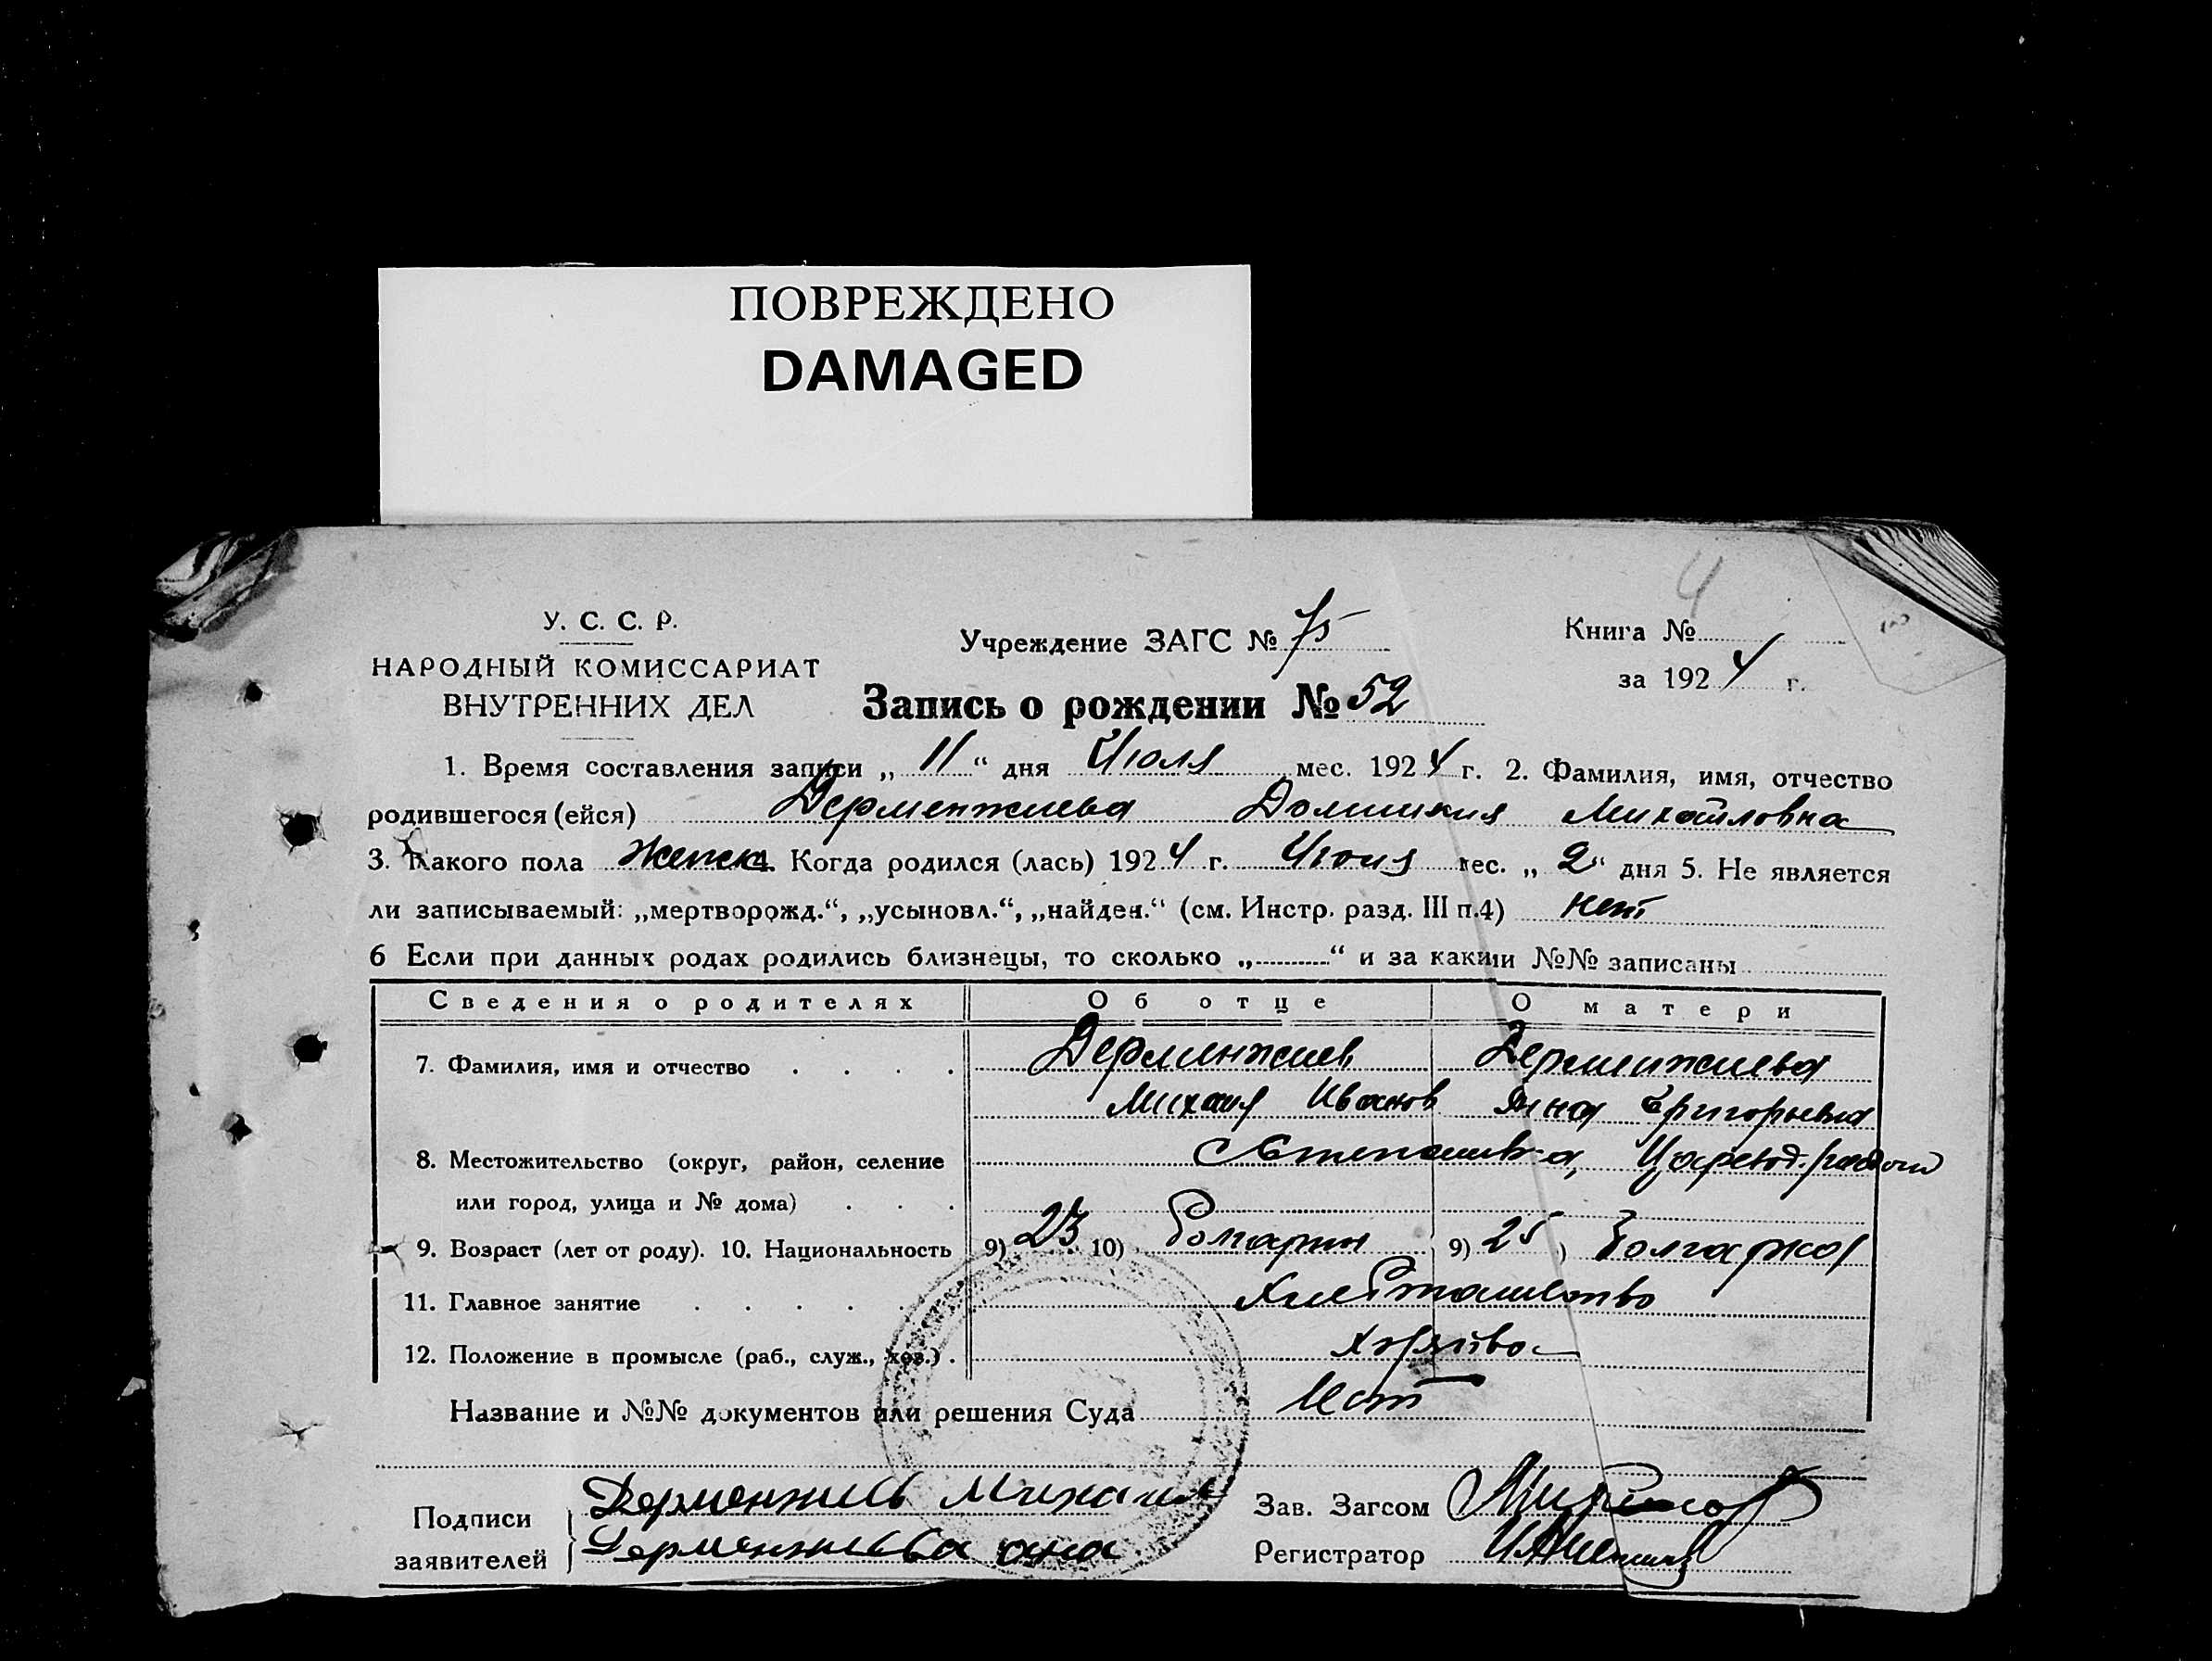 ПОВРЕЖДЕНО
DAMAGED
4
У. С. С. Р.
НАРОДНЫЙ КОМИССАРИАТ
ВНУТРЕННИХ ДЕЛ
Учреждение ЗАГС № 75
Запись о рождении № 52
Книга №
за 1924 г.
1. Время составления записи „ 11 “ дня Июля мес. 1924 г. 2. Фамилия, имя, отчество
родившегося (ейся) Дерменжиева Домникия Михайловна
3. Какого пола женск 4. Когда родился (лась) 1924 г. Июля мес. „ 2 “ дня 5. Не является
ли записываемый: „мертворожд.“, „усыновл.“, „найден.“ (см. Инстр. разд. III п.4) нет
6 Если при данных родах родились близнецы, то сколько „ “ и за какими №№ записаны
Сведения о родителях Об отце О матери
7. Фамилия, имя и отчество Дерменжиев Дерменжиева
Михаил Иванов Анна Григорьевна
8. Местожительство (округ, район, селение Степановка, Цареюд. район
или город, улица и № дома)
9. Возраст (лет от роду). 10. Национальность 9) 23 10) Болгарин 9) 25 ) Болгарка
11. Главное занятие Хлебопашество
12. Положение в промысле (раб., служ., хоз.) .
Название и №№ документов или решения Суда Нет
Подписи
заявителей
Дерменжиев Михаил
Дерменжиева Анна
Зав. Загсом
Регистратор